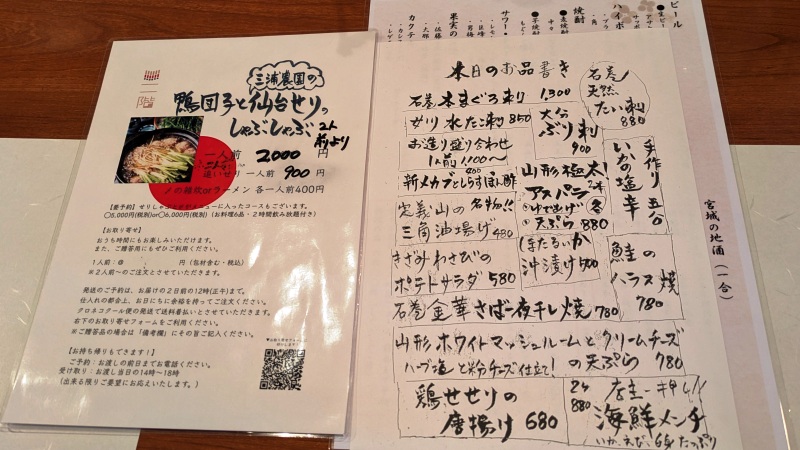 二階
三浦農園の
鴨団子と仙台せりの
しゃぶしゃぶ 2人前より
一人前 2,000円
追いせり一人前 900円
〆の雑炊orラーメン 各一人前400円
【要予約】せりしゃぶがメニューに入ったコースもございます。
○5,000円(税別)or○6,000円(税別)(お料理6品・2時間飲み放題付き)
【お取り寄せ】
おうち時間にもお楽しみいただけます。
また、ご贈答用にもぜひご利用ください。
1人前:@ 円(包材含む・税込)
※2人前~のご注文とさせていただきます。
発送のご予約は、お届けの2日前の12時(正午)まで。
仕入れの都合上、お日にちに余裕を持ってご注文ください。
クロネコクール便の発送で送料着払いとさせていただきます。
右下のお取り寄せフォームをご利用ください。
※ご贈答品の場合は「備考欄」にその旨ご記入ください。
【お持ち帰りもできます!】
ご予約:お渡しの前日までお電話ください。
受け取り:お渡し当日の14時~18時
(出来る限りご要望にお応えいたします。)
ビール
ハイボ
焼酎
・麦焼酎
・芋焼酎
サワー
・レモ
・巨峰
・男梅
果実の
・佐藤
・太郎
カクテ
・カシ
本日のお品書き
石巻本まぐろ刺 1,300
女川 水たこ刺 850
お造り盛り合わせ
1人前 1,100~
新メカブとしらすぽん酢 400
定義山の名物!!
三角油揚げ 480
きざみわさびの
ポテトサラダ 580
石巻金華さば一夜干し焼 780
大分
ぶり刺
900
石巻
天然
たい刺
880
山形 極太!
アスパラ 2本
①ゆで上げ 各
②天ぷら 880
ほたるいか
沖漬け 500
手作り 五合
いかの塩辛
鮭の
ハラス焼
780
山形ホワイトマッシュルームとクリームチーズ
ハーブ塩と粉チーズ仕立て! の天ぷら 780
鶏せせりの
唐揚げ 680
2ヶ
880
店主一押し!!
海鮮メンチ
いか、えび、白身たっぷり
宮城の地酒(一合)